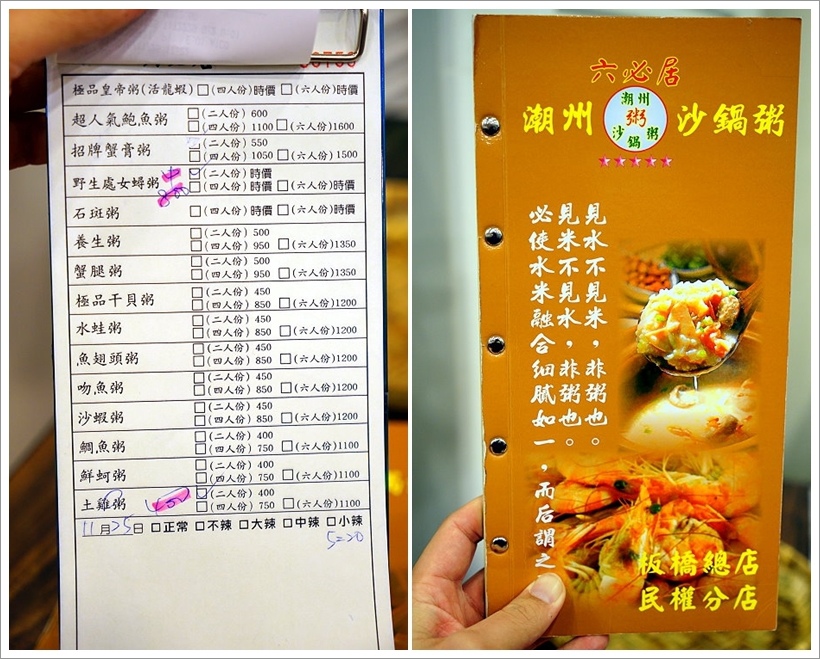 極品皇帝粥(活龍蝦) □(四人份)時價 □(六人份)時價
超人氣鮑魚粥 □(二人份) 600
□(四人份) 1100 □(六人份)1600
招牌蟹膏粥 □(二人份) 550
□(四人份) 1050 □(六人份) 1500
野生處女蟳粥 □(二人份)時價
□(四人份)時價 □(六人份)時價
石斑粥 □(四人份)時價 □(六人份)時價
養生粥 □(二人份) 500
□(四人份) 950 □(六人份)1350
蟹腿粥 □(二人份) 500
□(四人份) 950 □(六人份)1350
極品干貝粥 □(二人份) 450
□(四人份) 850 □(六人份)1200
水蛙粥 □(二人份) 450
□(四人份) 850 □(六人份)1200
魚翅頭粥 □(二人份) 450
□(四人份) 850 □(六人份)1200
吻魚粥 □(二人份) 450
□(四人份) 850 □(六人份)1200
沙蝦粥 □(二人份) 450
□(四人份) 850 □(六人份)1200
鯛魚粥 □(二人份) 400
□(四人份) 750 □(六人份)1100
鮮蚵粥 □(二人份) 400
□(四人份) 750 □(六人份)1100
土雞粥 □(二人份) 400
□(四人份) 750 □(六人份)1100
11月25日 □正常 □不辣 □大辣 □中辣 □小辣
六必居
潮州 沙鍋粥
潮州
粥
沙鍋粥
見水不見米，非粥也。
見米不見水，非粥也。
必使水米融合細膩如一，而后謂之
板橋總店
民權分店